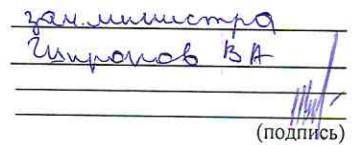 зам.министра
Широков ВА
(подпись)